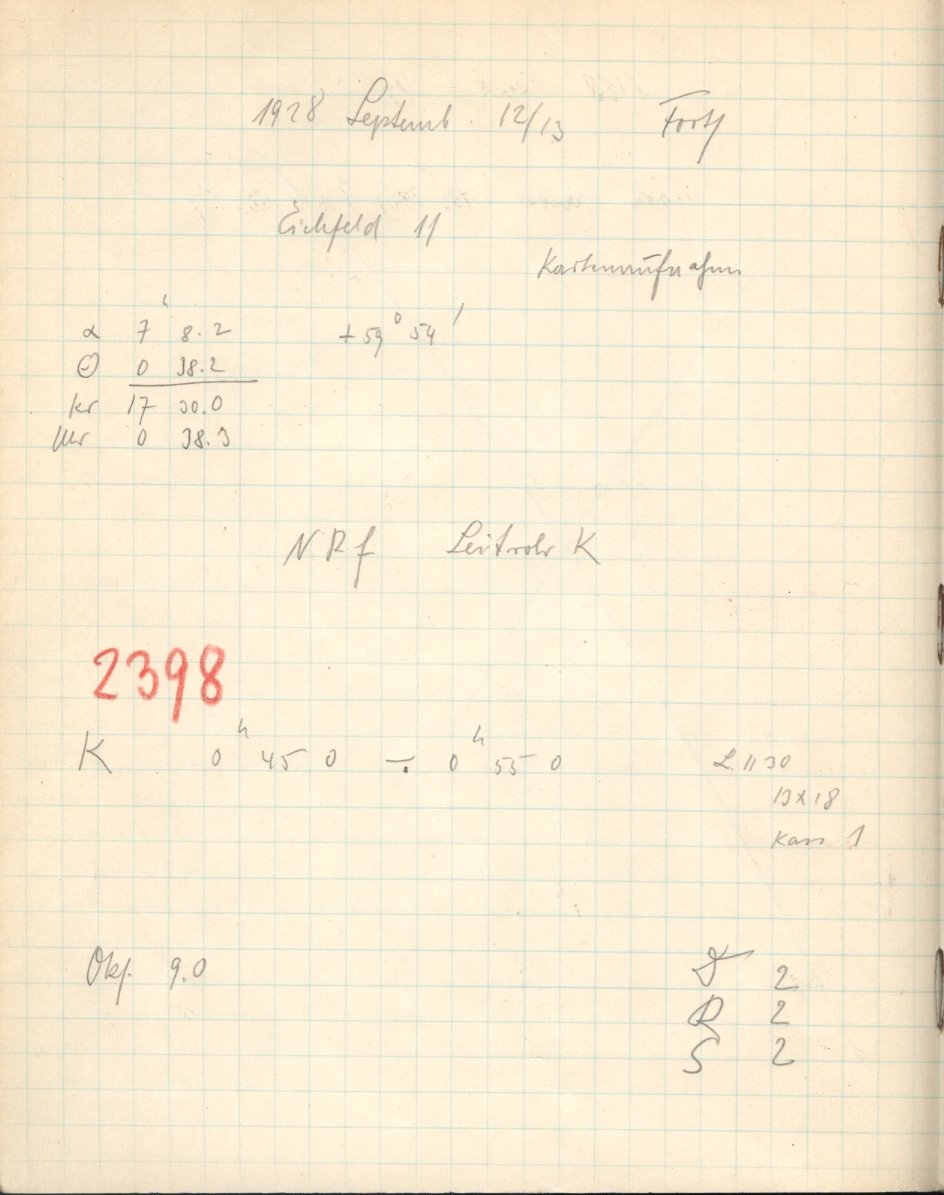 1928 Septemb. 12/13 Forts
Eichfeld 11
Kartenaufnahme
α 7ʰ 8.2 +59° 54'
Θ 0 38.2
kr 17 30.0
Uhr 0 38.3
N R f Leitrohr K
2398
K 0ʰ 45 0 ÷ 0ʰ 55 0 L 1130
13x18
Kass 1
Okf. 9.0 D 2
R 2
S 2